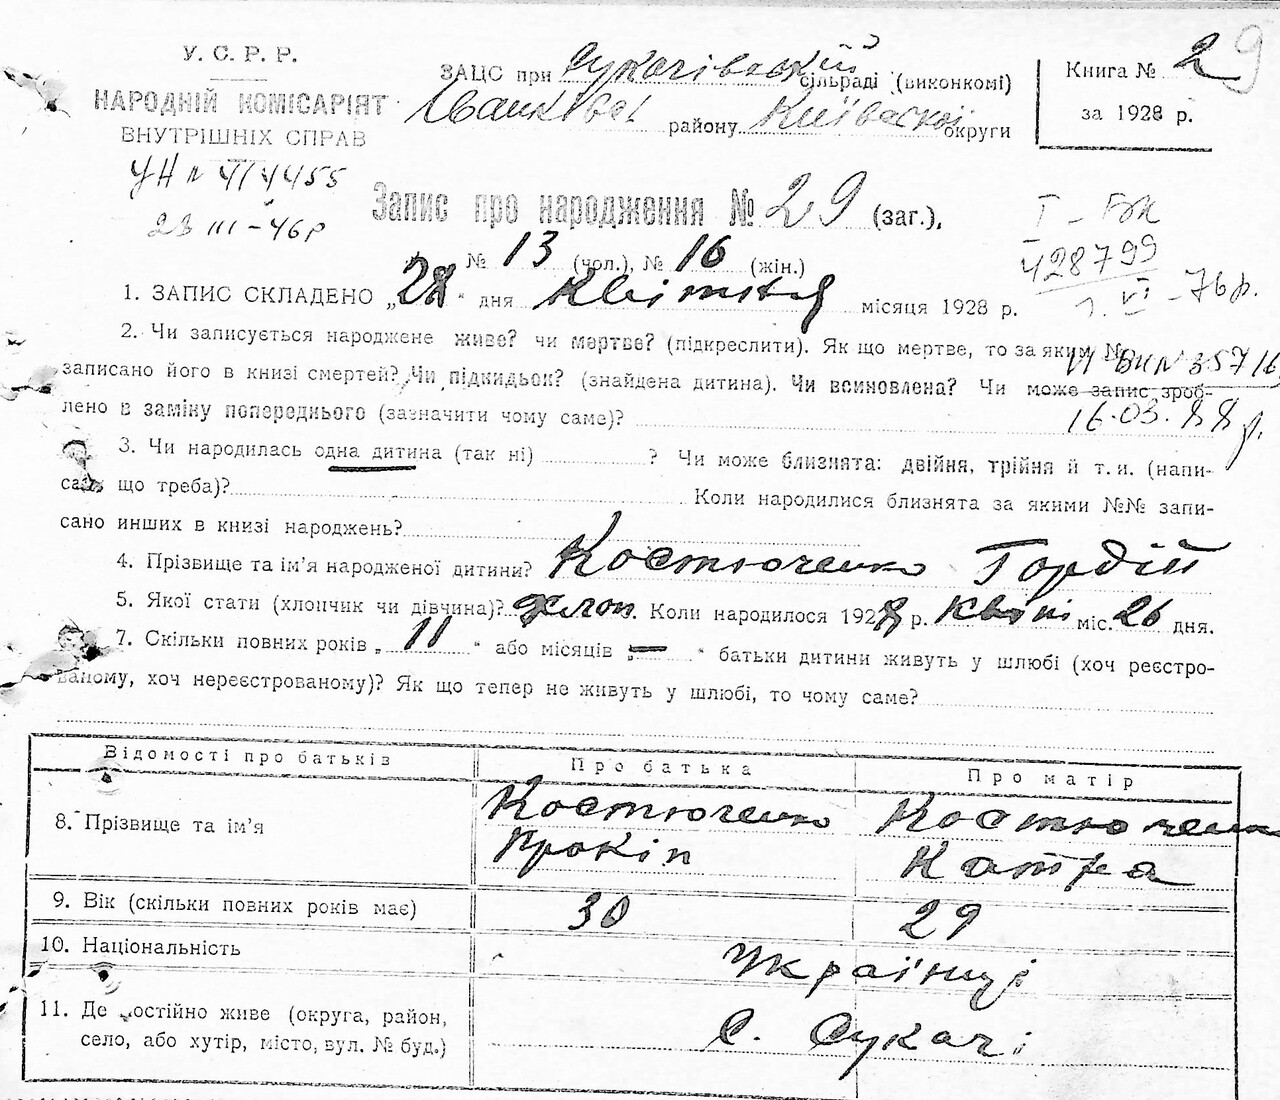 У. С. Р. Р.
НАРОДНІЙ КОМІСАРІЯТ
ВНУТРІШНІХ СПРАВ
ЗАЦС при Сукачівській сільраді (виконкомі)
району Київської округи
Книга № 2
за 1928 р.
29
23 III-46р
Запис про народження № 29 (заг.),
№ 13 (чол.), № 16 (жін.)
428799
1. VI -76р.
1. ЗАПИС СКЛАДЕНО „28“ дня Квітня місяця 1928 р.
2. Чи записується народжене живе? чи мертве? (підкреслити). Як що мертве, то за яким №
VI БК № 35716
записано його в книзі смертей? Чи підкидьок? (знайдена дитина). Чи всиновлена? Чи може запис зроб-
лено в заміну попереднього (зазначити чому саме)?
16.03.88 р.
3. Чи народилась одна дитина (так ні) ? Чи може близнята: двійня, трійня й т. и. (напи-
сать що треба)? Коли народилися близнята за якими №№ запи-
сано инших в книзі народжень?
4. Прізвище та ім'я народженої дитини? Костюченко Гордій
5. Якої статі (хлопчик чи дівчина)? хлоп. Коли народилося 1928 р. Квітн міс. 26 дня.
7. Скільки повних років „11“ або місяців „—“ батьки дитини живуть у шлюбі (хоч реєстро-
ваному, хоч нереєстрованому)? Як що тепер не живуть у шлюбі, то чому саме?
Відомості про батьків Про батька Про матір
8. Прізвище та ім'я Костюченко Прокіп Костюченко Катря
9. Вік (скільки повних років має) 30 29
10. Національність Українці
11. Де постійно живе (округа, район,
село, або хутір, місто, вул. № буд.) С. Сукачі